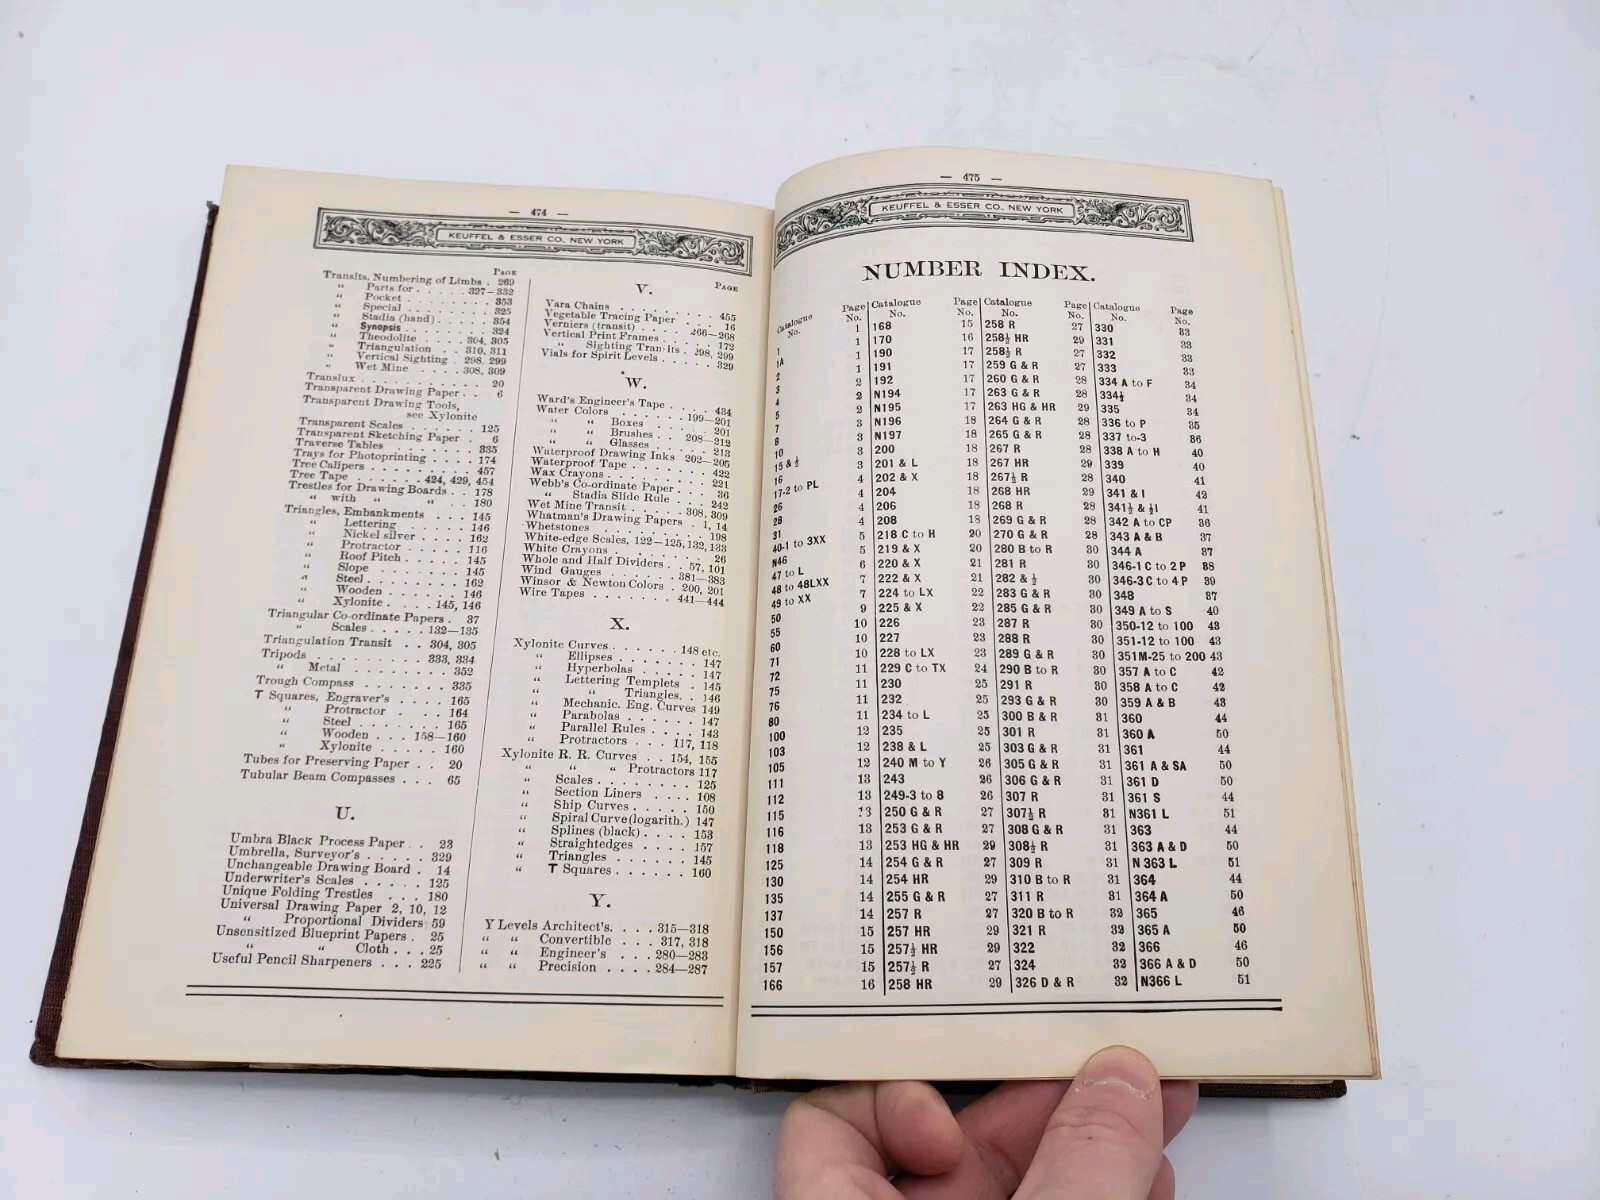 — 474 —
KEUFFEL & ESSER CO. NEW YORK
PAGE
Transits, Numbering of Limbs . 269
“ Parts for . . . . . 327–332
“ Pocket . . . . . . . . 353
“ Special . . . . . . . . 325
“ Stadia (hand) . . . . . 354
“ Synopsis . . . . . . . . 324
“ Theodolite . . . . 304, 305
“ Triangulation . . 310, 311
“ Vertical Sighting . 298, 299
“ Wet Mine . . . . 308, 309
Translux . . . . . . . . . . . 20
Transparent Drawing Paper . . 6
Transparent Drawing Tools,
see Xylonite
Transparent Scales . . . . . . 125
Transparent Sketching Paper . 6
Traverse Tables . . . . . . . 335
Trays for Photoprinting . . . . 174
Tree Calipers . . . . . . . . 457
Tree Tape . . . . . . 424, 429, 454
Trestles for Drawing Boards . . 178
“ with “ “ . 180
Triangles, Embankments . . . 145
“ Lettering . . . . . . 146
“ Nickel silver . . . . 162
“ Protractor . . . . . 116
“ Roof Pitch . . . . . 145
“ Slope . . . . . . . 145
“ Steel . . . . . . . . 162
“ Wooden . . . . . . 146
“ Xylonite . . . . 145, 146
Triangular Co-ordinate Papers . 37
“ Scales . . . . . 132–135
Triangulation Transit . . 304, 305
Tripods . . . . . . . . . 333, 334
“ Metal . . . . . . . . 352
Trough Compass . . . . . . . 335
T Squares, Engraver's . . . . 165
“ Protractor . . . . 164
“ Steel . . . . . . . 165
“ Wooden . . . 158–160
“ Xylonite . . . . . 160
Tubes for Preserving Paper . . 20
Tubular Beam Compasses . . . 65
U.
Umbra Black Process Paper . . 23
Umbrella, Surveyor's . . . . . 329
Unchangeable Drawing Board . 14
Underwriter's Scales . . . . . 125
Unique Folding Trestles . . . 180
Universal Drawing Paper 2, 10, 12
“ Proportional Dividers 59
Unsensitized Blueprint Papers . 25
“ “ Cloth . . . 25
Useful Pencil Sharpeners . . . 225
V.
PAGE
Vara Chains . . . . . . . . . 455
Vegetable Tracing Paper . . . 16
Verniers (transit) . . . . . 266–268
Vertical Print Frames . . . . . 172
“ Sighting Transits . 298, 299
Vials for Spirit Levels . . . . . 329
W.
Ward's Engineer's Tape . . . . 434
Water Colors . . . . . . 199–201
“ “ Boxes . . . . . 201
“ “ Brushes . . 208–212
“ “ Glasses . . . . 213
Waterproof Drawing Inks 202–205
Waterproof Tape . . . . . . . 422
Wax Crayons . . . . . . . . 221
Webb's Co-ordinate Paper . . . 36
“ Stadia Slide Rule . . . 242
Wet Mine Transit . . . . 308, 309
Whatman's Drawing Papers . 1, 14
Whetstones . . . . . . . . . 198
White-edge Scales, 122–125, 132, 133
White Crayons . . . . . . . . 26
Whole and Half Dividers . . 57, 101
Wind Gauges . . . . . . 381–383
Winsor & Newton Colors . 200, 201
Wire Tapes . . . . . . . 441–444
X.
Xylonite Curves . . . . . . 148 etc.
“ Ellipses . . . . . . 147
“ Hyperbolas . . . . . 147
“ Lettering Templets . 145
“ “ Triangles. . 146
“ Mechanic. Eng. Curves 149
“ Parabolas . . . . . 147
“ Parallel Rules . . . . 143
“ Protractors . . . 117, 118
Xylonite R. R. Curves . . 154, 155
“ “ “ Protractors 117
“ Scales . . . . . . . . 125
“ Section Liners . . . . 108
“ Ship Curves . . . . . 150
“ Spiral Curve (logarith.) 147
“ Splines (black) . . . . 153
“ Straightedges . . . . 157
“ Triangles . . . . . . 145
“ T Squares . . . . . . 160
Y.
Y Levels Architect's. . . . 315–318
“ “ Convertible . . . 317, 318
“ “ Engineer's . . . 280–283
“ “ Precision . . . . 284–287
— 475 —
KEUFFEL & ESSER CO. NEW YORK
NUMBER INDEX.
Catalogue No. Page No.
1 1
1A 1
2 1
3 1
4 2
5 2
7 2
8 3
10 3
15 & ½ 3
16 3
17-2 to PL 4
26 4
28 4
31 4
40-1 to 3XX 5
N46 5
47 to L 6
48 to 48LXX 7
49 to XX 7
50 9
55 10
60 10
71 10
72 11
75 11
76 11
80 11
100 12
103 12
105 12
111 13
112 13
115 13
116 13
118 13
125 14
130 14
135 14
137 14
150 15
156 15
157 15
166 16
Catalogue No. Page No.
168 15
170 16
190 17
191 17
192 17
N194 17
N195 17
N196 18
N197 18
200 18
201 & L 18
202 & X 18
204 18
206 18
208 18
218 C to H 20
219 & X 20
220 & X 21
222 & X 21
224 to LX 22
225 & X 22
226 23
227 23
228 to LX 23
229 C to TX 24
230 25
232 25
234 to L 25
235 25
238 & L 25
240 M to Y 26
243 26
249-3 to 8 26
250 G & R 27
253 G & R 27
253 HG & HR 29
254 G & R 27
254 HR 29
255 G & R 27
257 R 27
257 HR 29
257½ HR 29
257½ R 27
258 HR 29
Catalogue No. Page No.
258 R 27
258½ HR 29
258½ R 27
259 G & R 27
260 G & R 28
263 G & R 28
263 HG & HR 29
264 G & R 28
265 G & R 28
267 R 28
267 HR 29
267½ R 28
268 HR 29
268 R 28
269 G & R 28
270 G & R 28
280 B to R 30
281 R 30
282 & ½ 30
283 G & R 30
285 G & R 30
287 R 30
288 R 30
289 G & R 30
290 B to R 30
291 R 30
293 G & R 30
300 B & R 31
301 R 31
303 G & R 31
305 G & R 31
306 G & R 31
307 R 31
307½ R 31
308 G & R 31
308½ R 31
309 R 31
310 B to R 31
311 R 31
320 B to R 32
321 R 32
322 32
324 32
326 D & R 32
Catalogue No. Page No.
330 33
331 33
332 33
333 33
334 A to F 34
334½ 34
335 34
336 to P 35
337 to-3 36
338 A to H 40
339 40
340 41
341 & I 42
341½ & ½I 41
342 A to CP 36
343 A & B 37
344 A 37
346-1 C to 2 P 38
346-3 C to 4 P 39
348 37
349 A to S 40
350-12 to 100 43
351-12 to 100 43
351M-25 to 200 43
357 A to C 42
358 A to C 42
359 A & B 43
360 44
360 A 50
361 44
361 A & SA 50
361 D 50
361 S 44
N361 L 51
363 44
363 A & D 50
N 363 L 51
364 44
364 A 50
365 46
365 A 50
366 46
366 A & D 50
N366 L 51